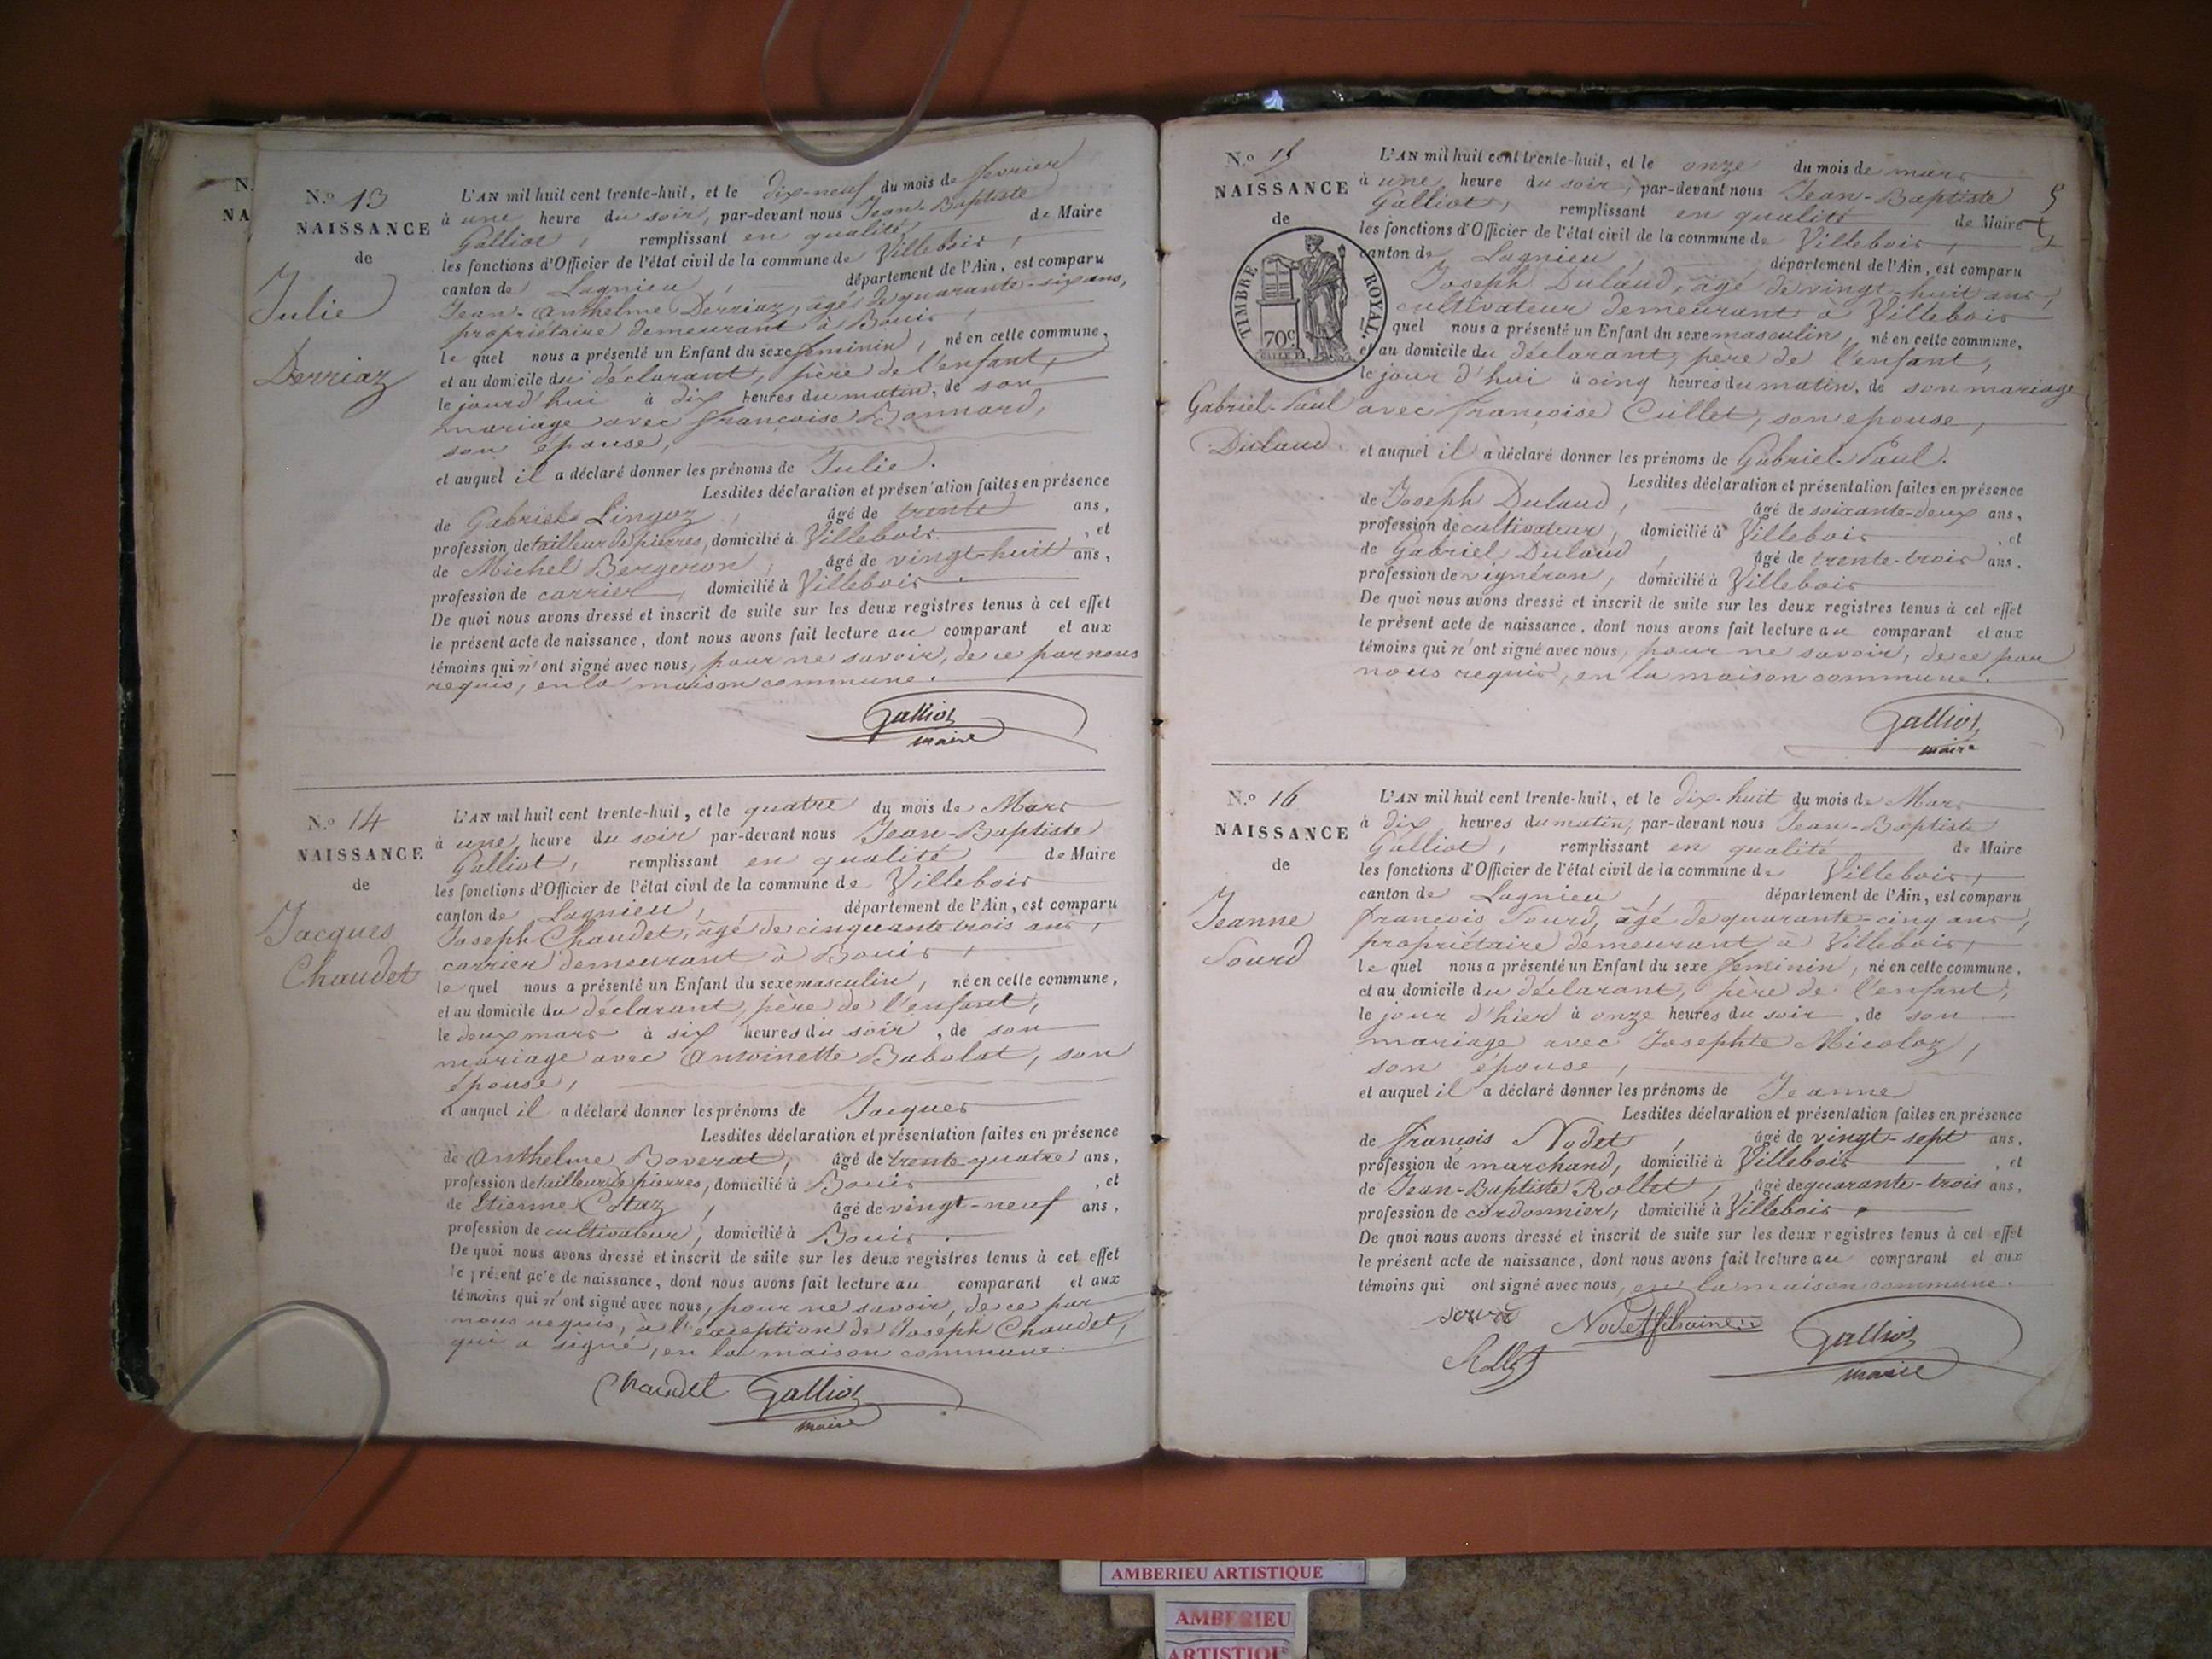 N.
NA
N.o 13
NAISSANCE
de
Julie
Derriaz
L'AN mil huit cent trente-huit, et le dix-neuf du mois de fevrier
à une heure du soir, par-devant nous Jean-Baptiste
Galliot, remplissant en qualité de Maire
les fonctions d'Officier de l'état civil de la commune de Villebois,
canton de Lagnieu, département de l'Ain, est comparu
Jean-Anthelme Derriaz, âgé de quarante-six ans,
propriétaire demeurant à Bouis,
le quel nous a présenté un Enfant du sexe feminin, né en cette commune,
et au domicile du déclarant, père de l'enfant,
le jourd'hui à dix heures du matin, de son
mariage avec françoise Bonnard,
son épouse,
et auquel il a déclaré donner les prénoms de Julie.
Lesdites déclaration et présentation faites en présence
de Gabriel Lingoz, âgé de trente ans,
profession de tailleur de pierres, domicilié à Villebois, et
de Michel Bergeron, âgé de vingt-huit ans,
profession de carrier, domicilié à Villebois.
De quoi nous avons dressé et inscrit de suite sur les deux registres tenus à cet effet
le présent acte de naissance, dont nous avons fait lecture au comparant et aux
témoins qui n'ont signé avec nous, pour ne savoir, de ce par nous
requis, en la maison commune.
Galliot
maire
N.o 14
NAISSANCE
de
Jacques
Chaudet
L'AN mil huit cent trente-huit, et le quatre du mois de Mars
à une heure du soir par-devant nous Jean-Baptiste
Galliot, remplissant en qualité de Maire
les fonctions d'Officier de l'état civil de la commune de Villebois
canton de Lagnieu, département de l'Ain, est comparu
Joseph Chaudet, âgé de cinquante trois ans,
carrier demeurant à Bouis,
le quel nous a présenté un Enfant du sexe masculin, né en cette commune,
et au domicile du déclarant, père de l'enfant,
le deux mars à six heures du soir, de son
mariage avec Antoinette Babolat, son
épouse,
et auquel il a déclaré donner les prénoms de Jacques
Lesdites déclaration et présentation faites en présence
de Anthelme Boverat, âgé de trente-quatre ans,
profession de tailleur de pierres, domicilié à Bouis, et
de Etienne Cttaz, âgé de vingt-neuf ans,
profession de cultivateur, domicilié à Bouis.
De quoi nous avons dressé et inscrit de suite sur les deux registres tenus à cet effet
le présent acte de naissance, dont nous avons fait lecture au comparant et aux
témoins qui n'ont signé avec nous, pour ne savoir, de ce par
nous requis, à l'exception de Joseph Chaudet,
qui a signé, en la maison commune.
Chaudet Galliot
maire
N.o 15
NAISSANCE
de
TIMBRE ROYAL.
70c
Gabriel-Paul
Dulaud
L'AN mil huit cent trente-huit, et le onze du mois de mars
à une heure du soir, par-devant nous Jean-Baptiste
Galliot, remplissant en qualité de Maire
les fonctions d'Officier de l'état civil de la commune de Villebois,
canton de Lagnieu, département de l'Ain, est comparu
Joseph Dulaud, âgé de vingt-huit ans,
cultivateur demeurant à Villebois
quel nous a présenté un Enfant du sexe masculin, né en cette commune,
et au domicile du déclarant, père de l'enfant,
le jour d'hui à cinq heures du matin, de son mariage
avec françoise Cullet, son epouse,
et auquel il a déclaré donner les prénoms de Gabriel-Paul.
Lesdites déclaration et présentation faites en présence
de Joseph Dulaud, âgé de soixante-deux ans,
profession de cultivateur, domicilié à Villebois, et
de Gabriel Dulaud, âgé de trente-trois ans,
profession de vignéron, domicilié à Villebois
De quoi nous avons dressé et inscrit de suite sur les deux registres tenus à cet effet
le présent acte de naissance, dont nous avons fait lecture au comparant et aux
témoins qui n'ont signé avec nous, pour ne savoir, de ce par
nous requis, en la maison commune.
Galliot
maire
N.o 16
NAISSANCE
de
Jeanne
Sourd
L'AN mil huit cent trente-huit, et le dix-huit du mois de Mars
à dix heures du matin, par-devant nous Jean-Baptiste
Galliot, remplissant en qualité de Maire
les fonctions d'Officier de l'état civil de la commune de Villebois,
canton de Lagnieu, département de l'Ain, est comparu
francois Sourd, âgé de quarante-cinq ans,
propriétaire demeurant à Villebois,
le quel nous a présenté un Enfant du sexe feminin, né en cette commune,
et au domicile du déclarant, père de l'enfant,
le jour d'hier à onze heures du soir, de son
mariage avec Josephte Micoloz,
son épouse,
et auquel il a déclaré donner les prénoms de Jeanne
Lesdites déclaration et présentation faites en présence
de françois Nodet, âgé de vingt-sept ans,
profession de marchand, domicilié à Villebois, et
de Jean-Baptiste Rollet, âgé de quarante-trois ans,
profession de cordonnier, domicilié à Villebois.
De quoi nous avons dressé et inscrit de suite sur les deux registres tenus à cet effet
le présent acte de naissance, dont nous avons fait lecture au comparant et aux
témoins qui ont signé avec nous, en la maison commune.
Galliot
Rollet
maire
AMBERIEU ARTISTIQUE
AMBERIEU
ARTISTIQUE